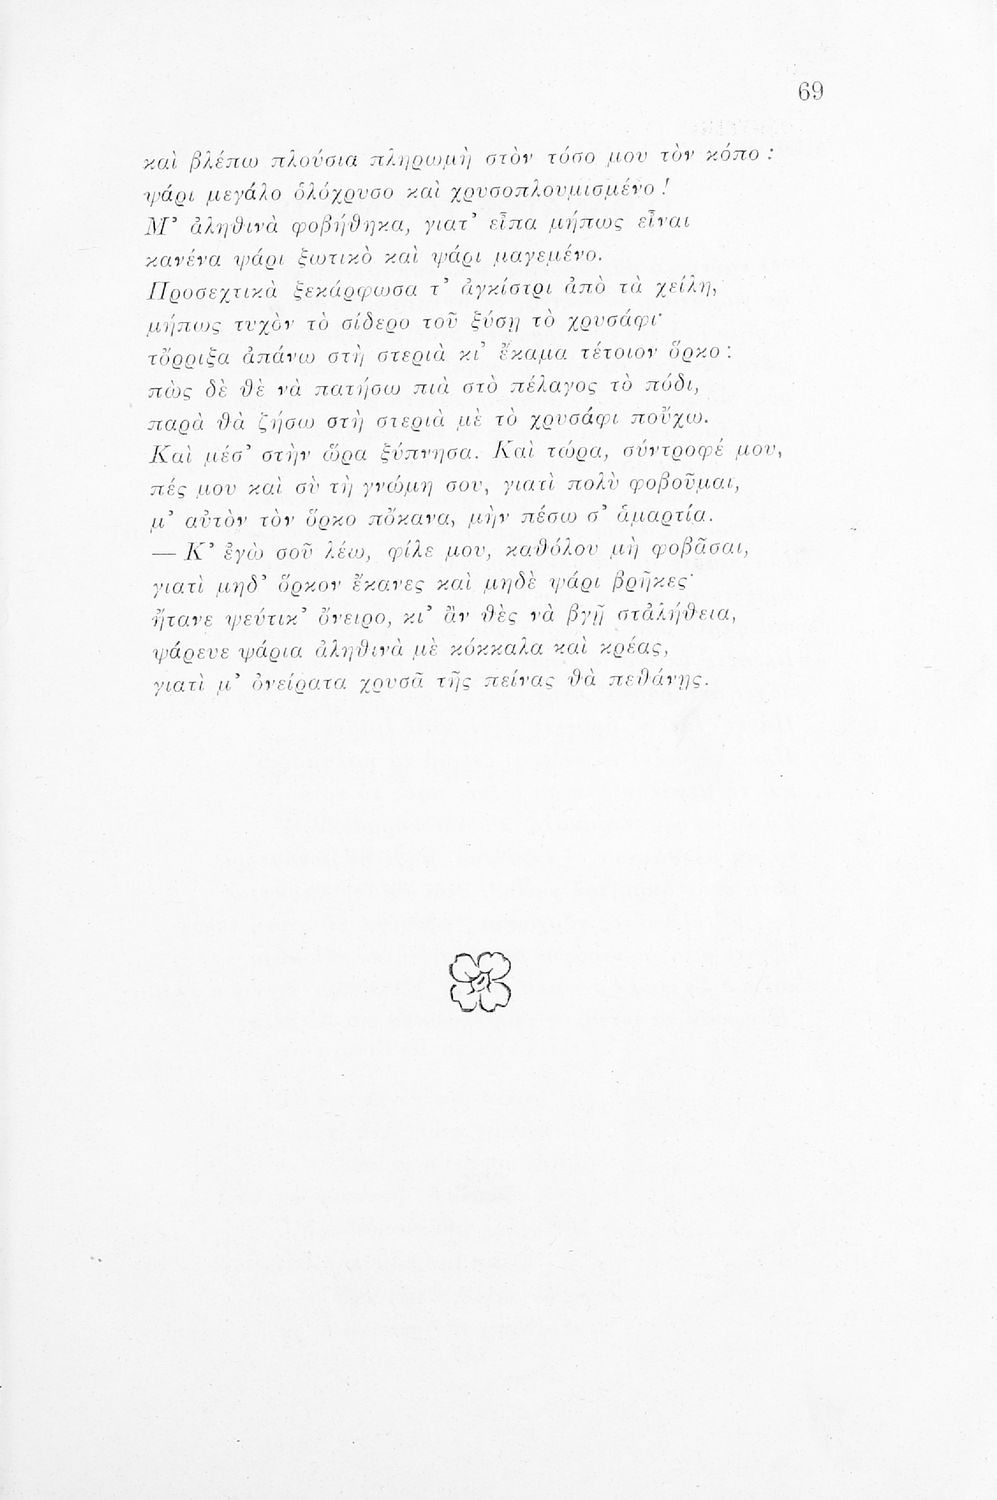 69
καὶ βλέπω πλούσια πληρωμὴ στὸν τόσο μου τὸν κόπο :
ψάρι μεγάλο ὁλόχρυσο καὶ χρυσοπλουμισμένο !
Μ’ ἀληθινὰ φοβήθηκα, γιατ’ εἶπα μήπως εἶναι
κανένα ψάρι ξωτικὸ καὶ ψάρι μαγεμένο.
Προσεχτικὰ ξεκάρφωσα τ’ ἀγκίστρι ἀπὸ τὰ χείλη,
μήπως τυχὸν τὸ σίδερο τοῦ ξύσῃ τὸ χρυσάφι·
τὄρριξα ἀπάνω στὴ στεριὰ κι’ ἔκαμα τέτοιον ὅρκο :
πὼς δὲ θὲ νὰ πατήσω πιὰ στὸ πέλαγος τὸ πόδι,
παρὰ θὰ ζήσω στὴ στεριὰ μὲ τὸ χρυσάφι ποὔχω.
Καὶ μέσ’ στὴν ὥρα ξύπνησα. Καὶ τώρα, σύντροφέ μου,
πές μου καὶ σὺ τὴ γνώμη σου, γιατὶ πολὺ φοβοῦμαι,
μ’ αὐτὸν τὸν ὅρκο πὄκανα, μὴν πέσω σ’ ἁμαρτία.
— Κ’ ἐγὼ σοῦ λέω, φίλε μου, καθόλου μὴ φοβᾶσαι,
γιατὶ μηδ’ ὅρκον ἔκανες καὶ μηδὲ ψάρι βρῆκες·
ἤτανε ψεύτικ’ ὄνειρο, κι’ ἂν θὲς νὰ βγῇ στἀλήθεια,
ψάρευε ψάρια ἀληθινὰ μὲ κόκκαλα καὶ κρέας,
γιατὶ μ’ ὀνείρατα χρυσᾶ τῆς πείνας θὰ πεθάνῃς.